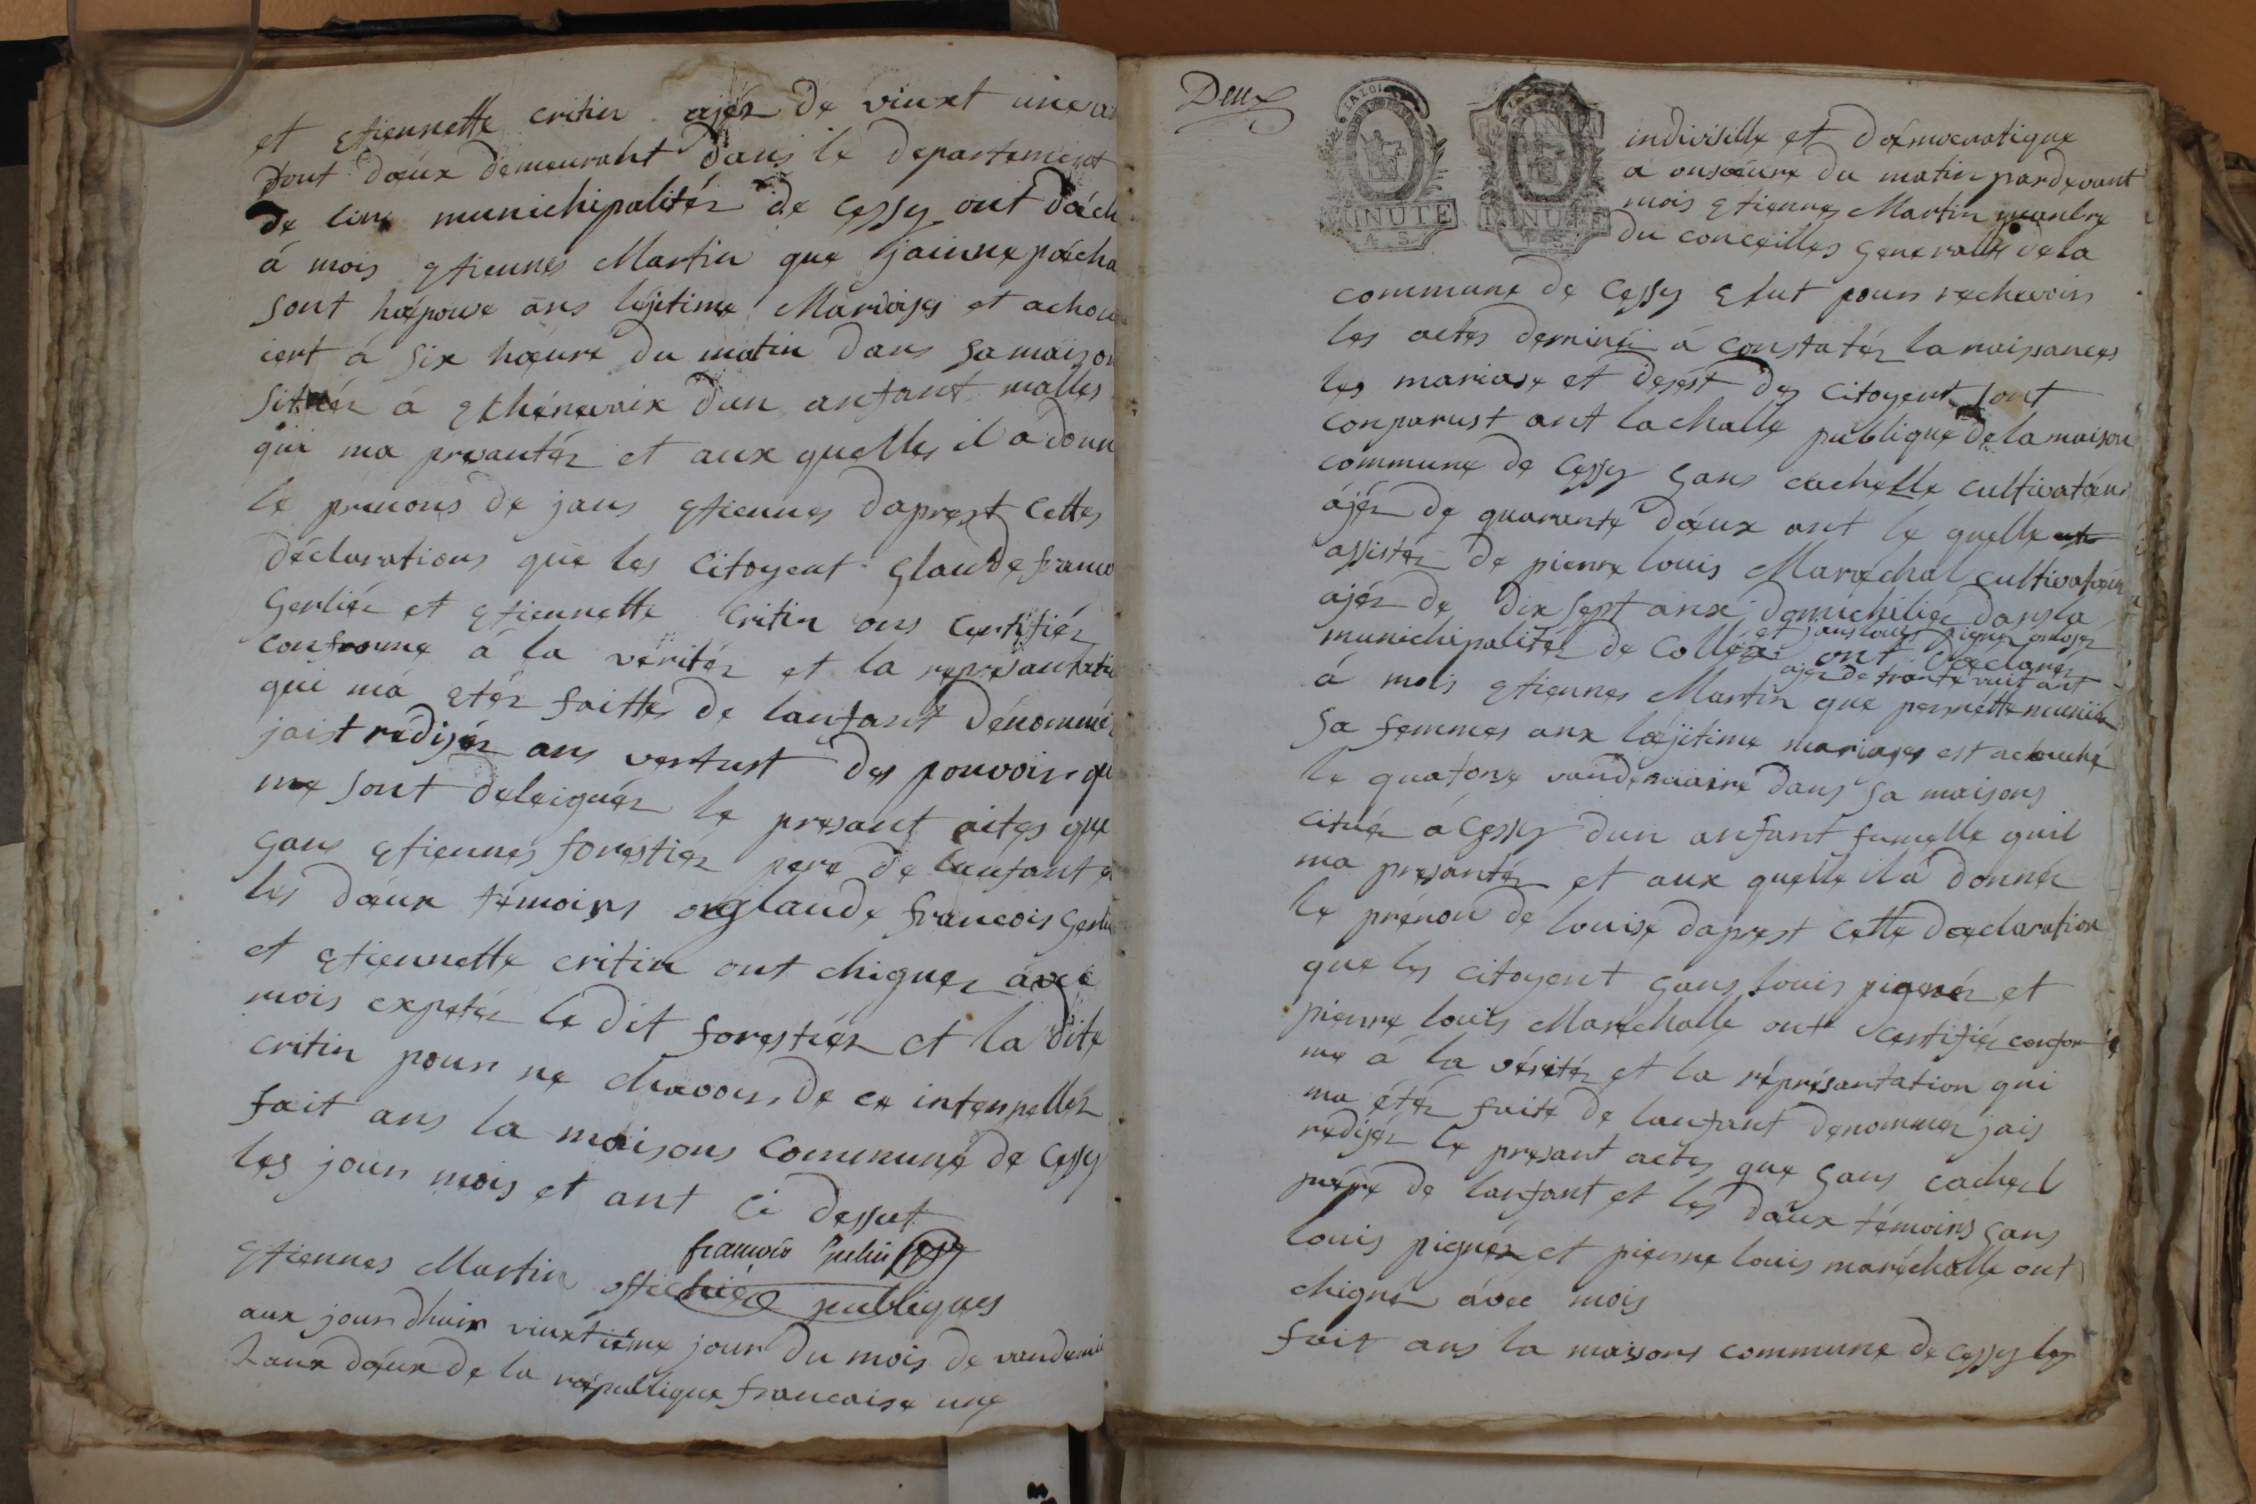 et Etiennette critin ajéz de vinxt une an
tout daeux demeurant dans le departement
de lin munichipalitéz de Cessy ont dách
á mois Etiennes Martin que jainne pácha
sont haépouse ans léjitime Mariaiges et achou
iert á six haeure du matin dans sa maison
sittuéz á Ethénevaix dun anfant malles
qui ma presantéz et aux quelles il a donn
le prenons de jans Etiennes daprest Cettes
déclarations que les Citoyent glaude franco
Gerliéz et Etiennette Critin ons Certifiéz
confrorme á la véritéz et la représantati
qui má Etéz faittes de lanfant dénommé
jaist rédijéz ans vertust des pouvoir qu
me sont deleiguéz le presant aites que
gans Etiennes forestiéz pere de lanfant e
les daeux témoins glaude francois Gerli
et Etiennette critin ont chignez avec
mois expetéz le dit forestiéz et la dite
critin pour ne chavoir de ce interpelléz
fait ans la maisons Commune de Cessy
les jour mois et ant Ci dessut
francois Gerliéz
Etiennes Martin offichiéz publiques
aux jourdhuix vinxtiéme jour du mois de vandemi
Lans daeux de la raépublique francaise une
Deux
LA LOI
MINUTE
4. S.
MINUTE
indivisille et daémocratique
a onsaeure du matin pardevant
mois Etiennes Martin manbre
du conceilles generalle de la
commune de Cessy Elut pour rechevoir
les actes derminéi á constatéz la naissances
les mariase et desést des Citoyent sont
conparust ant la challe publique de la maison
commune de Cessy gans cachelle cultivataeur
ájéz de quarante daeux ant le quelle
assistéz de pierre louis Maréchal cultivataeur
ajéz de dix sept anx domichiliéz dans la
et jans louis pignez
munichipalitéz de Colléx ont daeclaréz
ajéz de trante vuit ant
á mois Etiennes Martin que pernette muniér
sa femmes anx laéjitime mariages est achouché
le quatorse vandemiaire dans sa maisons
cituéz á Cessy dun anfant famelle quil
ma presantéz et aux quelle il á donnéz
le prénon de louise daprest Cette daeclaration
que les citoyent gans louis pignéz et
pierre louis Maréchalle ont certifiéz confor
me á la véritéz et la réprésantation qui
ma étéz faite de lanfant denommez jais
redijéz le presant actes que gans cachel
paére de lanfant et les daeux témoins gans
louis pignéz et pierre louis maréchalle ont
chignéz ávec mois
fait ans la maisons commune de Cessy les